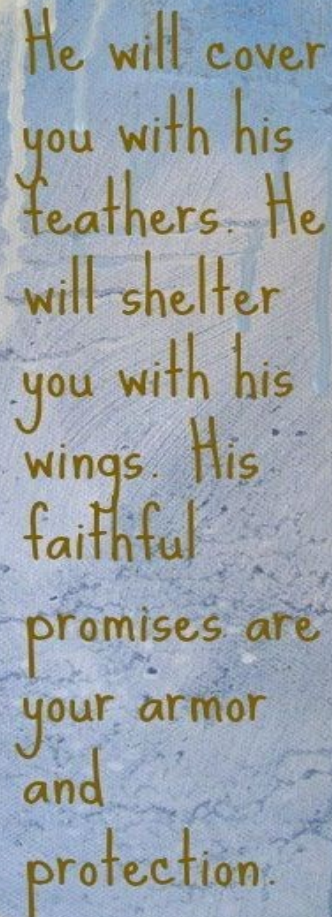 He will cover
you with his
feathers. He
will shelter
you with his
wings. His
faithful
promises are
your armor
and
protection.